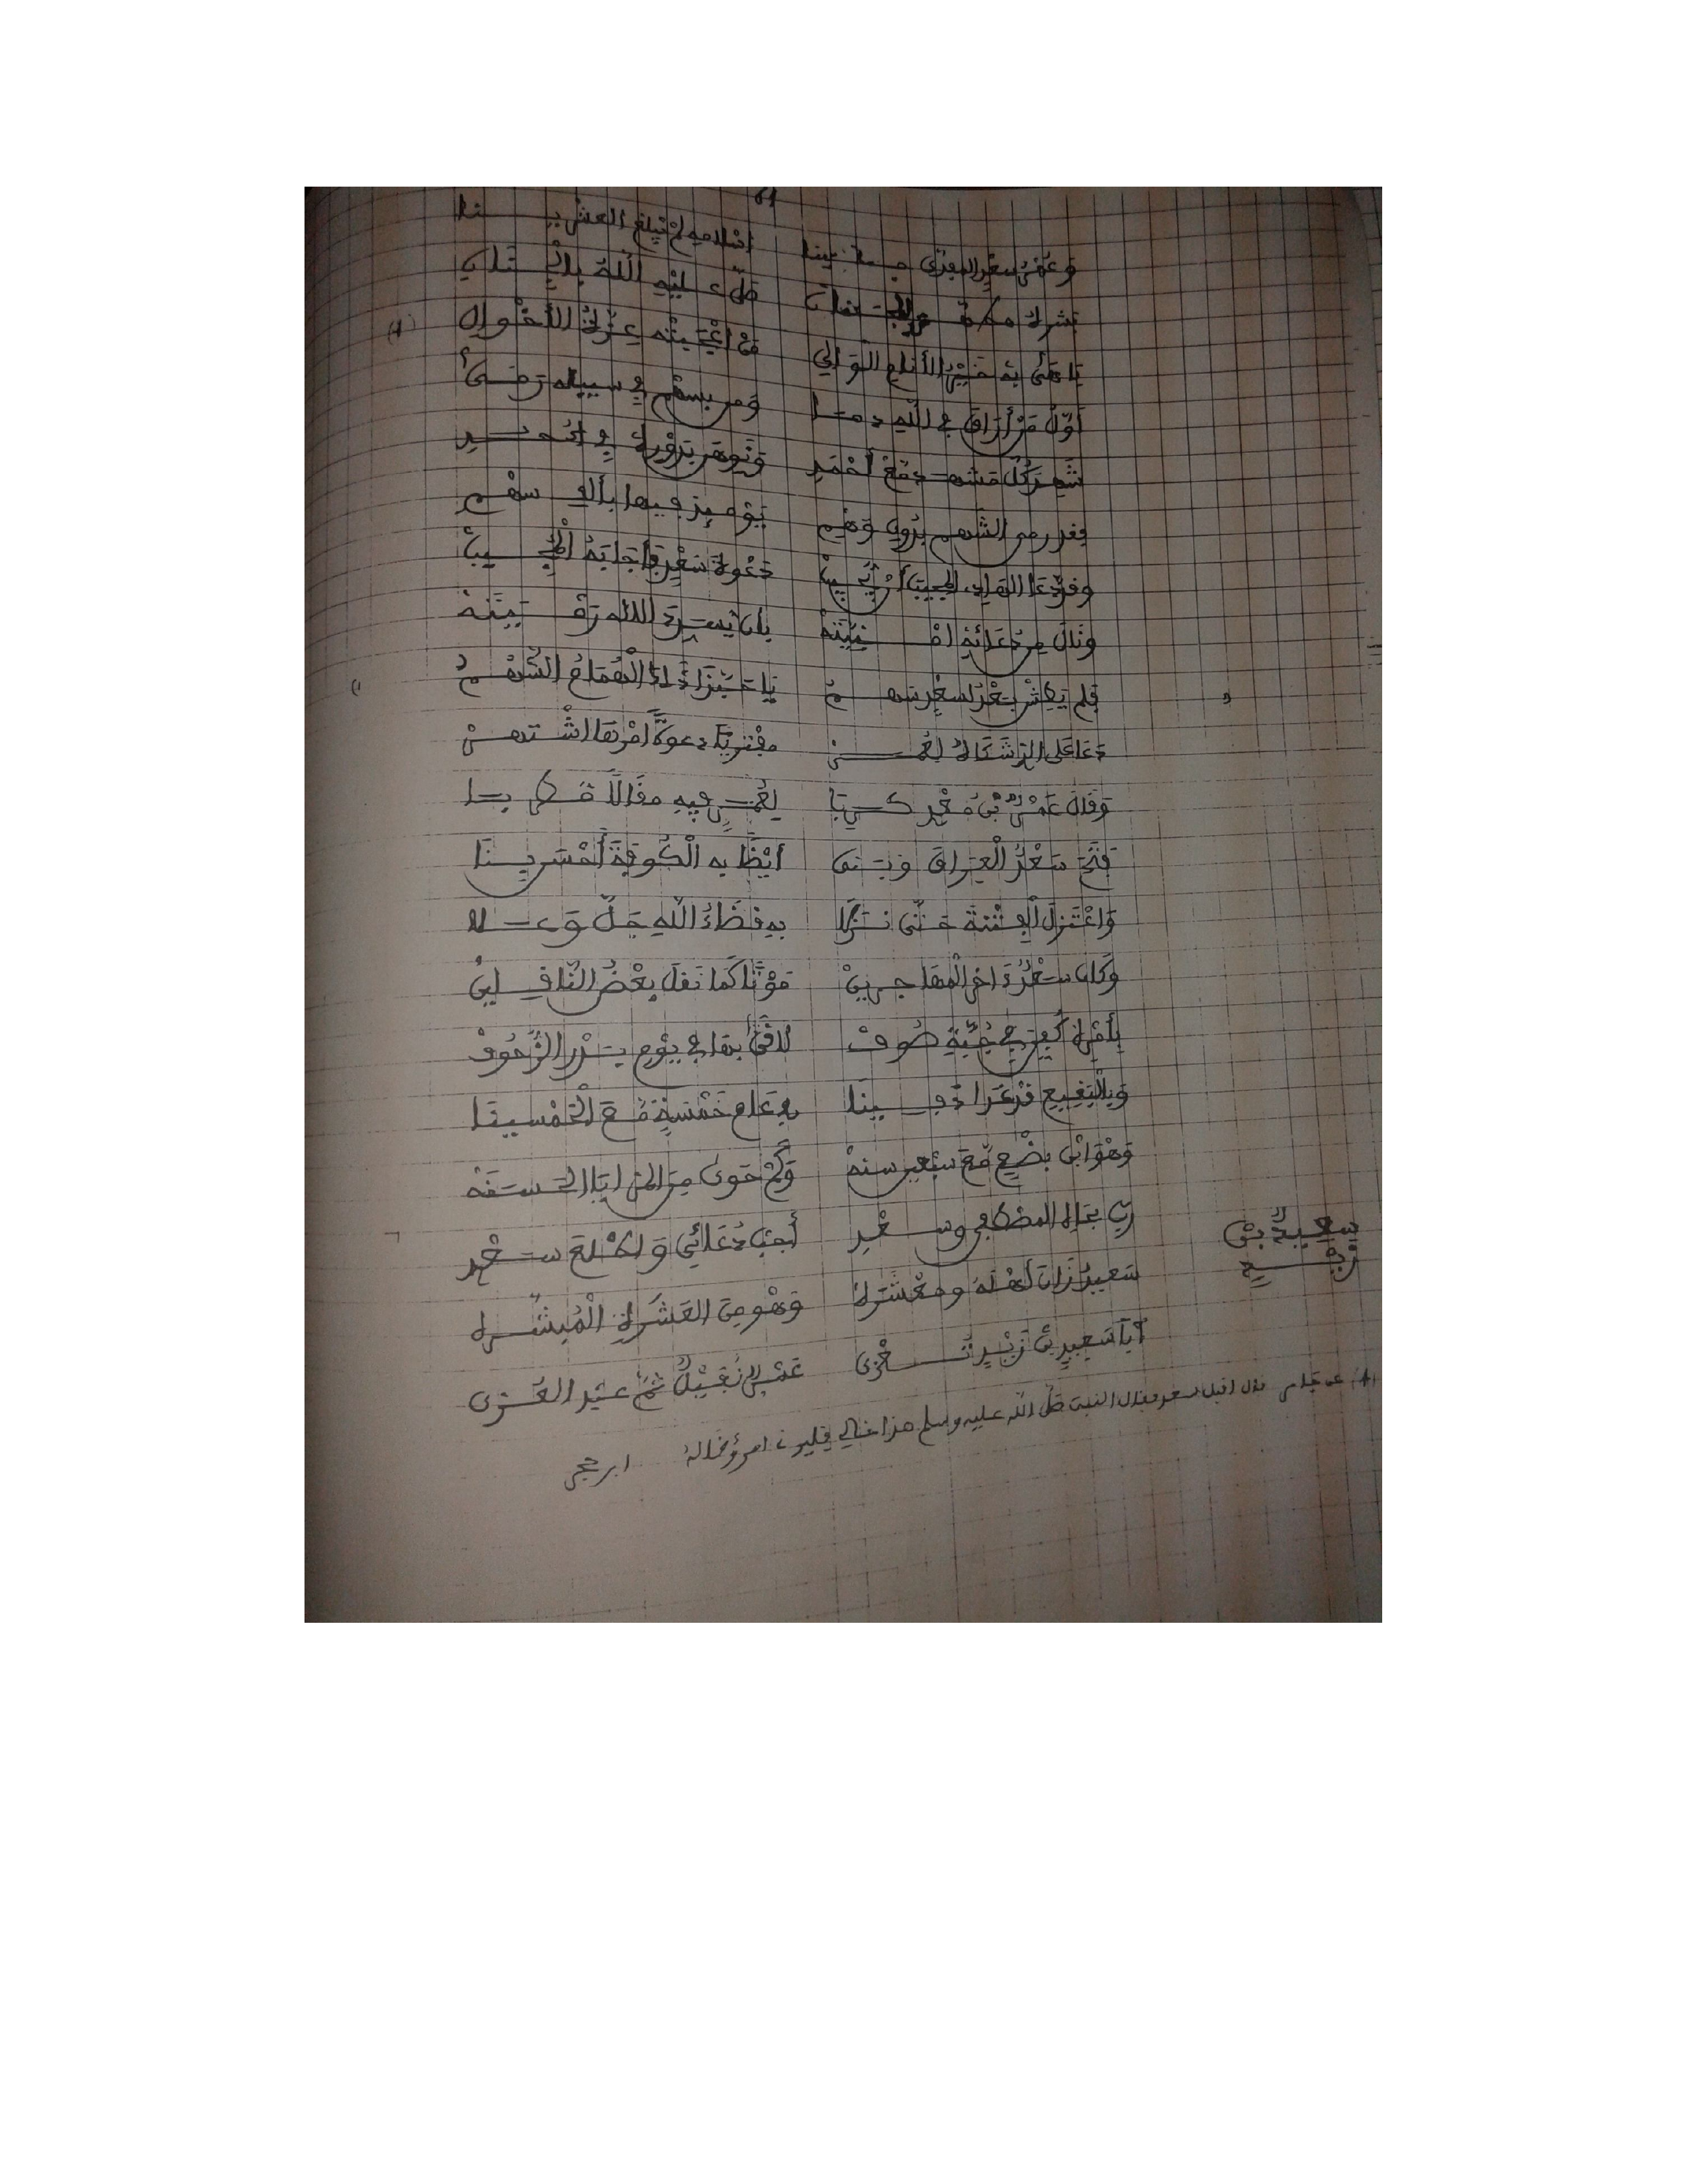 61
وَعُمْرُ سعْدٍ المفدى حينا إسلامه لمْ يَبْلغ العشْرينا
بشره صلى عليه اللّهُ بالجنان
بَاهَى بهِ خَيْرُ الأنامِ الْوَالي مَنْ أعْجَبَتْه عِزَّةُ الأخْوال (1)
أوّلُ مَنْ أرَاقَ في اللهِ دمَا وَمن بسهْم في سبيله رَمَى
شَهِدَ كُلَّ مَشهد مَعْ أحْمَدِ وَنَوهَن بِدَوْرِهِ في أُحُدِ
فقد رمى الشهم بدون وَهْم يَوْمئذ فيها بألف سهْم
وقد دَعَا الهادي المجيبَ أنْ يُجيبْ دَعْوةَ سَعْدٍ فأجَابَهُ المُجيبْ
ونَالَ مِن دُعَائهِ أمْنِيَّتَهْ بأن يسدد الاله رَمْيَتَهْ
فلم يَطِشْ بَعْدُ لسعْدٍ سهمُ يَا حَبَّذَا ذَاكَ الْهُمَامُ الشَّهْمُ
دَعَا عَلى الذِ شَكَاهُ لعُمَرْ مفْتريًا دعوةً أمْرُهَا اشْتهرْ
وَقَالَ عَمْرُو بْنُ مَعْدِ كَرِبَا لعُمَرٍ فيهِ مقَالًا مُطْرِبا
فَتَحَ سَعْدُ الْعِرَاقَ وَبَنى أيْضًا به الْكُوفَةَ أحْسَن بِنَا
وَاعْتَزلَ الْفِتْنَةَ حَتَّى نَزَلا بهِ قَضَاءُ اللهِ جَلَّ وَعَلا
وَكان سَعْدُ ءَاخرَ الْمهَاجرينْ مَوْتًا كَمَا نَقلَ بعْضُ النَّاقِلينْ
بأمْرِهِ كُفِّنَ في جُبَّةِ صُوفْ لاقَى بهَا في يَوْمِ بَدْرٍ الزُّحُوفْ
وَبالْبَقِيعِ قدْ غَدَا دَفِينَا في عَامِ خَمْسَةٍ مَعَ الْخَمْسينَا
وَهْوَ ابْنُ بِضْعٍ مَعَ سَبْعين سنهْ وَكَمْ حَوى مِنَ المزايَا الحَسَنَهْ
رَبِّ بجَاهِ المصطفى وسعْدِ أجِبْ دُعَائي وَاطْلعَ سَعْدِ
سَعيدُ زَانَ أهْلَهُ ومعْشَرَهْ وَهْو منَ العَشَرَةِ الْمُبَشَّره
سعيدُ بْنُ زَيْدٍ
أبَا سَعيدٍ بْنَ زَيْدٍ تُعْزَى عَمْرٍو نُفَيْلٌ ثُمَّ عبْد العُزَّى
(1) عن جابر قال اقبل سعد فقال النبي صلى الله عليه وسلم هذا خالي فليرني امرؤ خاله ابن حجر